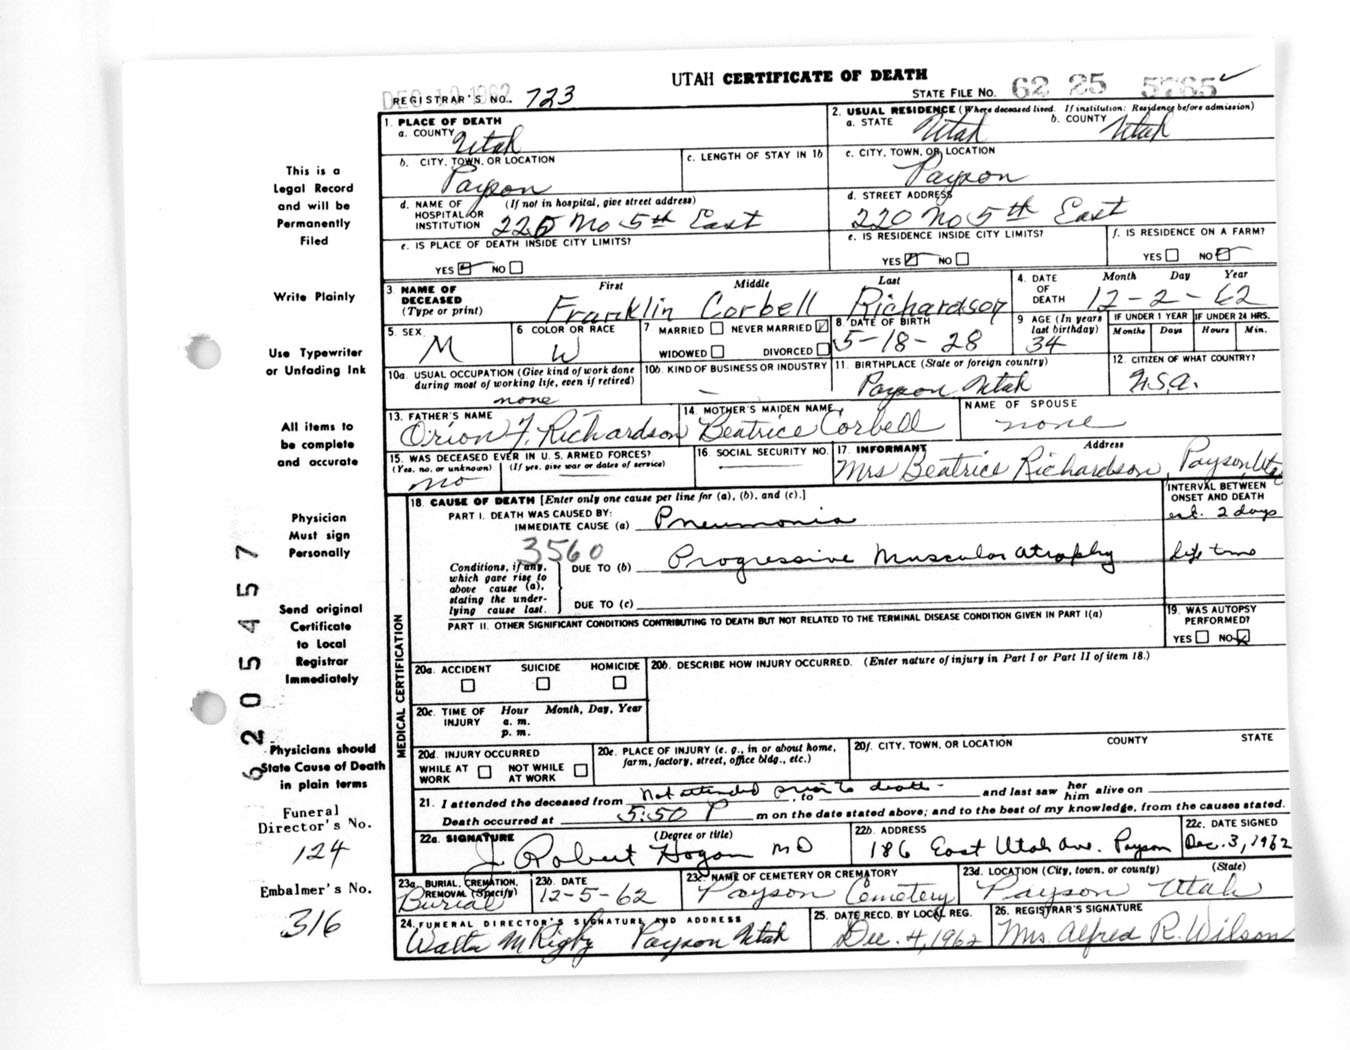 UTAH CERTIFICATE OF DEATH
DEC 10 1962
REGISTRAR'S NO. 723
STATE FILE NO. 62 25 5765 ✓
1. PLACE OF DEATH
a. COUNTY Utah
2. USUAL RESIDENCE (Where deceased lived. If institution: Residence before admission)
a. STATE Utah b. COUNTY Utah
b. CITY, TOWN, OR LOCATION Payson
c. LENGTH OF STAY IN 1b
c. CITY, TOWN, OR LOCATION Payson
d. NAME OF HOSPITAL OR INSTITUTION (If not in hospital, give street address) 220 No 5th East
d. STREET ADDRESS 220 No 5th East
e. IS PLACE OF DEATH INSIDE CITY LIMITS?
YES ☑ NO ☐
e. IS RESIDENCE INSIDE CITY LIMITS?
YES ☑ NO ☐
f. IS RESIDENCE ON A FARM?
YES ☐ NO ☑
3. NAME OF DECEASED (Type or print)
First Middle Last
Franklin Corbell Richardson
4. DATE OF DEATH Month Day Year
12-2-62
5. SEX M
6 COLOR OR RACE W
7 MARRIED ☐ NEVER MARRIED ☑
WIDOWED ☐ DIVORCED ☐
8. DATE OF BIRTH 5-18-28
9 AGE (In years last birthday) 34
IF UNDER 1 YEAR Months Days
IF UNDER 24 HRS. Hours Min.
10a. USUAL OCCUPATION (Give kind of work done during most of working life, even if retired) none
10b. KIND OF BUSINESS OR INDUSTRY —
11. BIRTHPLACE (State or foreign country) Payson Utah
12. CITIZEN OF WHAT COUNTRY? U.S.A.
13. FATHER'S NAME Orion F. Richardson
14. MOTHER'S MAIDEN NAME Beatrice Corbell
NAME OF SPOUSE none
15. WAS DECEASED EVER IN U. S. ARMED FORCES?
(Yes, no, or unknown) (If yes, give war or dates of service)
no
16. SOCIAL SECURITY NO.
17. INFORMANT Address
Mrs Beatrice Richardson, Payson, Utah
18. CAUSE OF DEATH [Enter only one cause per line for (a), (b), and (c).]
INTERVAL BETWEEN ONSET AND DEATH
PART I. DEATH WAS CAUSED BY:
IMMEDIATE CAUSE (a) Pneumonia est. 2 days
3560
Conditions, if any, which gave rise to above cause (a), stating the underlying cause last.
DUE TO (b) Progressive Muscular atrophy life time
DUE TO (c)
PART II. OTHER SIGNIFICANT CONDITIONS CONTRIBUTING TO DEATH BUT NOT RELATED TO THE TERMINAL DISEASE CONDITION GIVEN IN PART I(a)
19. WAS AUTOPSY PERFORMED?
YES ☐ NO ☑
20a. ACCIDENT SUICIDE HOMICIDE
☐ ☐ ☐
20b. DESCRIBE HOW INJURY OCCURRED. (Enter nature of injury in Part I or Part II of item 18.)
20c. TIME OF INJURY Hour Month, Day, Year
a. m.
p. m.
20d. INJURY OCCURRED
WHILE AT WORK ☐ NOT WHILE AT WORK ☐
20e. PLACE OF INJURY (e. g., in or about home, farm, factory, street, office bldg., etc.)
20f. CITY, TOWN, OR LOCATION COUNTY STATE
21. I attended the deceased from Not attended prior to death -, to and last saw her him alive on
Death occurred at 5:50 P m on the date stated above; and to the best of my knowledge, from the causes stated.
22a. SIGNATURE (Degree or title)
J. Robert Hogan MD
22b. ADDRESS
186 East Utah Ave. Payson
22c. DATE SIGNED
Dec. 3, 1962
23a. BURIAL, CREMATION, REMOVAL (Specify) Burial
23b. DATE 12-5-62
23c. NAME OF CEMETERY OR CREMATORY Payson Cemetery
23d. LOCATION (City, town, or county) (State)
Payson Utah
24. FUNERAL DIRECTOR'S SIGNATURE AND ADDRESS
Walter M Rigby Payson Utah
25. DATE RECD. BY LOCAL REG.
Dec. 4, 1962
26. REGISTRAR'S SIGNATURE
Mrs. Alfred R. Wilson
MEDICAL CERTIFICATION
This is a
Legal Record
and will be
Permanently
Filed
Write Plainly
Use Typewriter
or Unfading Ink
All items to
be complete
and accurate
Physician
Must sign
Personally
Send original
Certificate
to Local
Registrar
Immediately
Physicians should
State Cause of Death
in plain terms
Funeral
Director's No.
124
Embalmer's No.
316
6205457